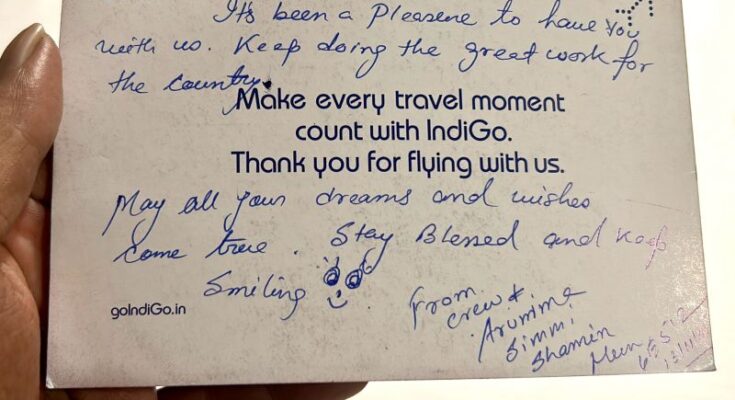 It's been a Pleasene to have you
with us. Keep doing the great work for
the country.
Make every travel moment
count with IndiGo.
Thank you for flying with us.
May all your dreams and wishes
come true. Stay Blessed and keep
Smiling
goIndiGo.in
From
crew
Arunima
Simm
Shamin